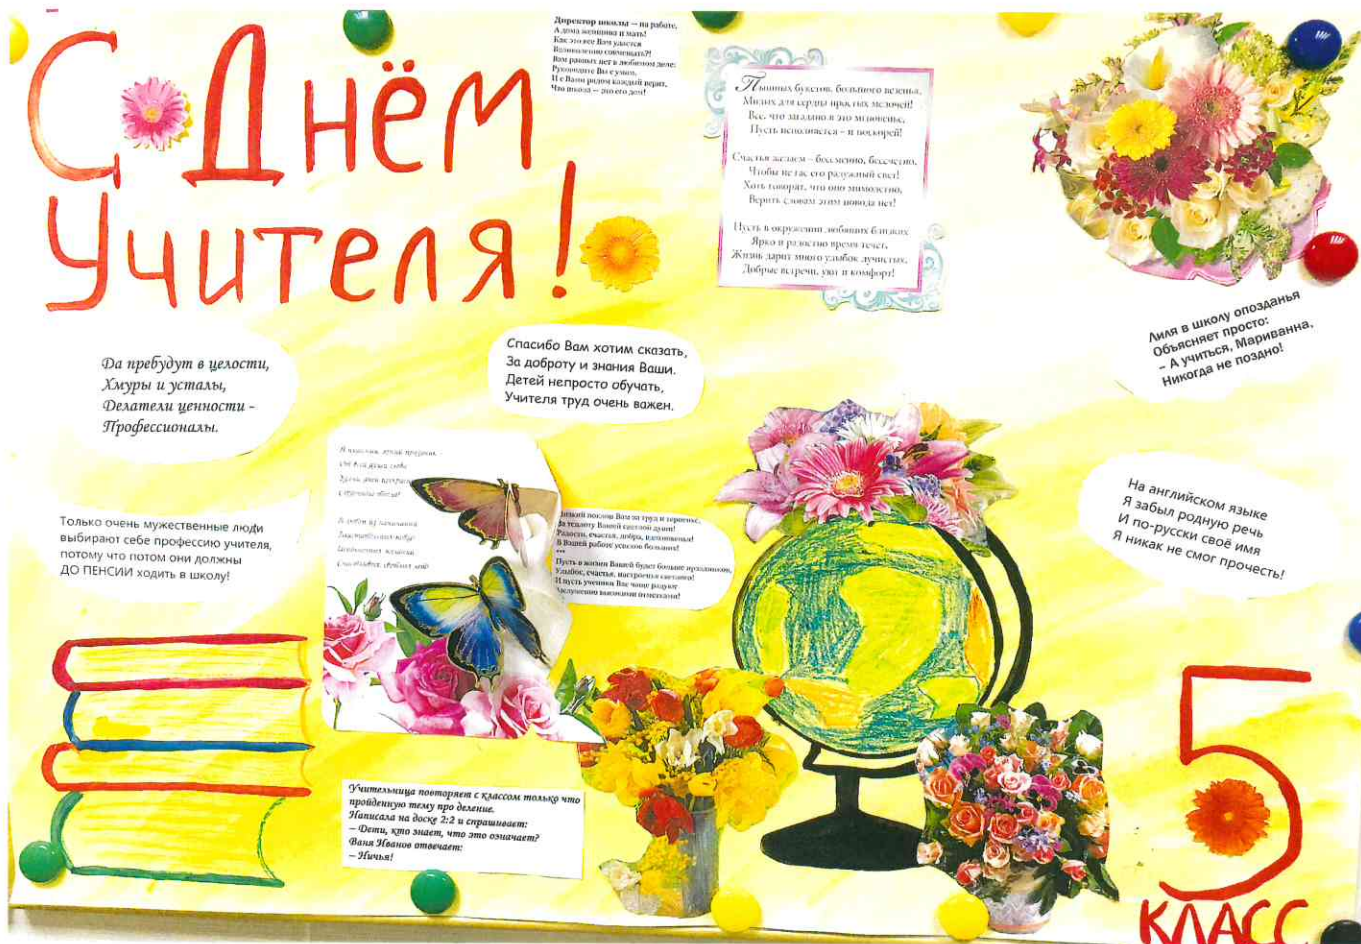 С Днём
Учителя!
Директор школы — на работе,
А дома женщина и мать!
Как это все Вам удается
Великолепно совмещать?!
Вам равных нет в любимом деле:
Руководите Вы с умом,
И с Вами рядом каждый верит,
Что школа — это его дом!
Пышных букетов, большого везенья,
Милых для сердца простых мелочей!
Все, что загадано в это мгновенье,
Пусть исполняется – и поскорей!
Счастья желаем – бессменно, бессчетно,
Чтобы не гас его радужный свет!
Хоть говорят, что оно мимолетно,
Верить словам этим повода нет!
Пусть в окружении любящих близких
Ярко и радостно время течет,
Жизнь дарит много улыбок лучистых,
Добрые встречи, уют и комфорт!
Лиля в школу опозданья
Объясняет просто:
– А учиться, Мариванна,
Никогда не поздно!
Да пребудут в целости,
Хмуры и усталы,
Делатели ценности -
Профессионалы.
Спасибо Вам хотим сказать,
За доброту и знания Ваши.
Детей непросто обучать,
Учителя труд очень важен.
На английском языке
Я забыл родную речь
И по-русски своё имя
Я никак не смог прочесть!
Только очень мужественные люди
выбирают себе профессию учителя,
потому что потом они должны
ДО ПЕНСИИ ходить в школу!
Низкий поклон Вам за труд и терпенье,
За теплоту Вашей светлой души!
Радости, счастья, добра, вдохновенья!
В Вашей работе успехов больших!
***
Пусть в жизни Вашей будет больше праздников,
Улыбок, счастья, настроения светлого!
И пусть ученики Вас чаще радуют
Заслуженно высокими отметками!
Учительница повторяет с классом только что
пройденную тему про деление.
Написала на доске 2:2 и спрашивает:
– Дети, кто знает, что это означает?
Ваня Иванов отвечает:
– Ничья!
5
КЛАСС